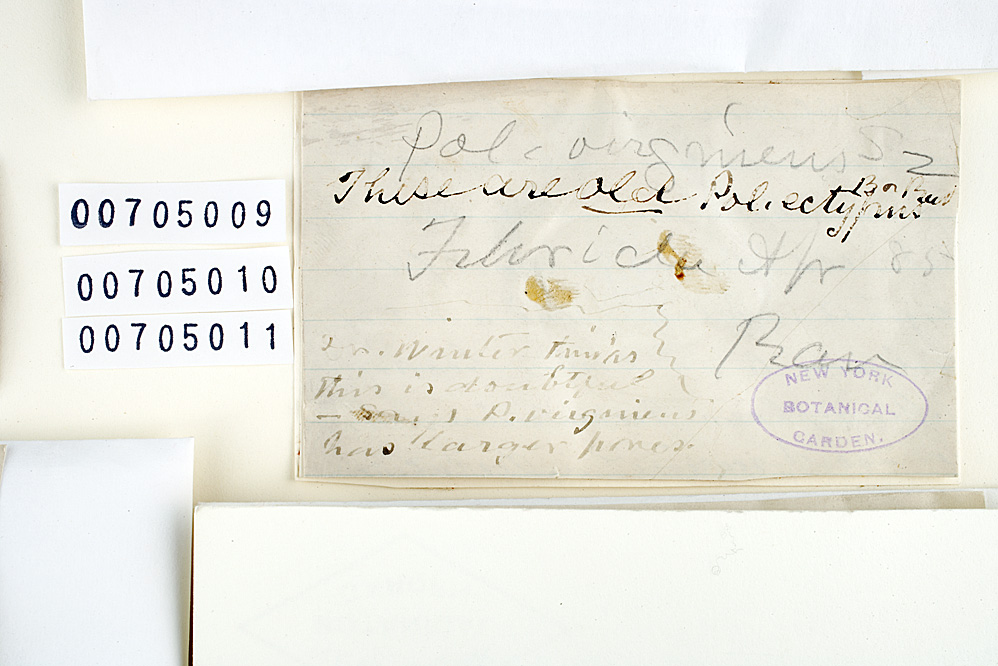 00705009
00705010
00705011
Pol. virginiens S Z
These are old Pol. ectypus
Apr 85
Rav
Dr. Winter thinks
this is doubtful
— says P. virginiens
has larger pores.
NEW YORK
BOTANICAL
GARDEN.